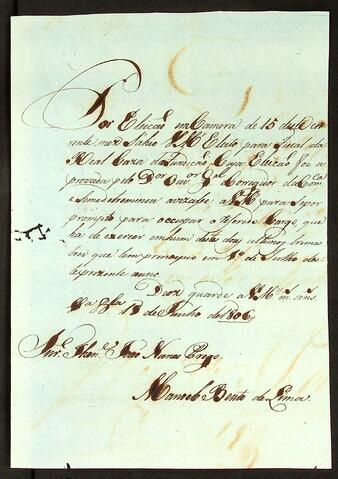 Por Eleição em Camera de 15 deste cor
rente mez Sahio VM Eleito para Fiscal da
Real Caza da Fundição, Cuja Eleição foi a
provada pelo Dor Ouvor Gal Corregedor da Comca
e me determinou avizase a VM para se por
prompto para occupar o referido Cargo, que
ha de exercer em hum destes dous ultimos trimes
tres que tem principio em 1º de Julho do
prezente anno.
Deos guarde a VM ms ans
Va 19 de Junho de 1806
Snr Thene João Nunes
Manoel Bento de Lima.